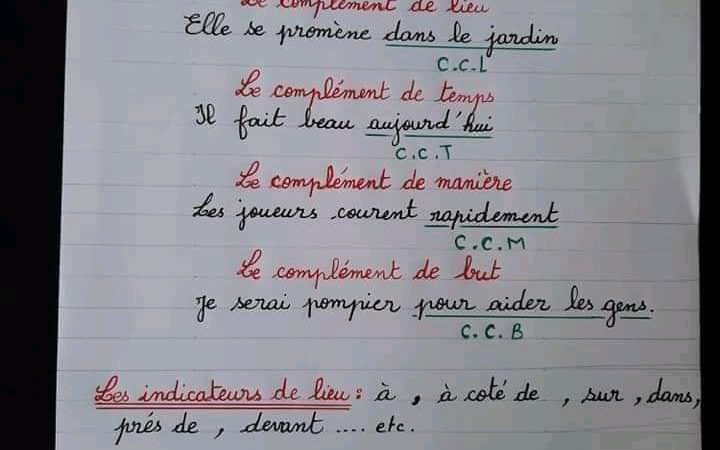 Le complément de lieu
Elle se promène dans le jardin
C.C.L
Le complément de temps
Il fait beau aujourd'hui
C.C.T
Le complément de manière
Les joueurs courent rapidement
C.C.M
Le complément de but
Je serai pompier pour aider les gens.
C.C.B
Les indicateurs de lieu : à , à coté de , sur , dans,
prés de , devant .... etc.